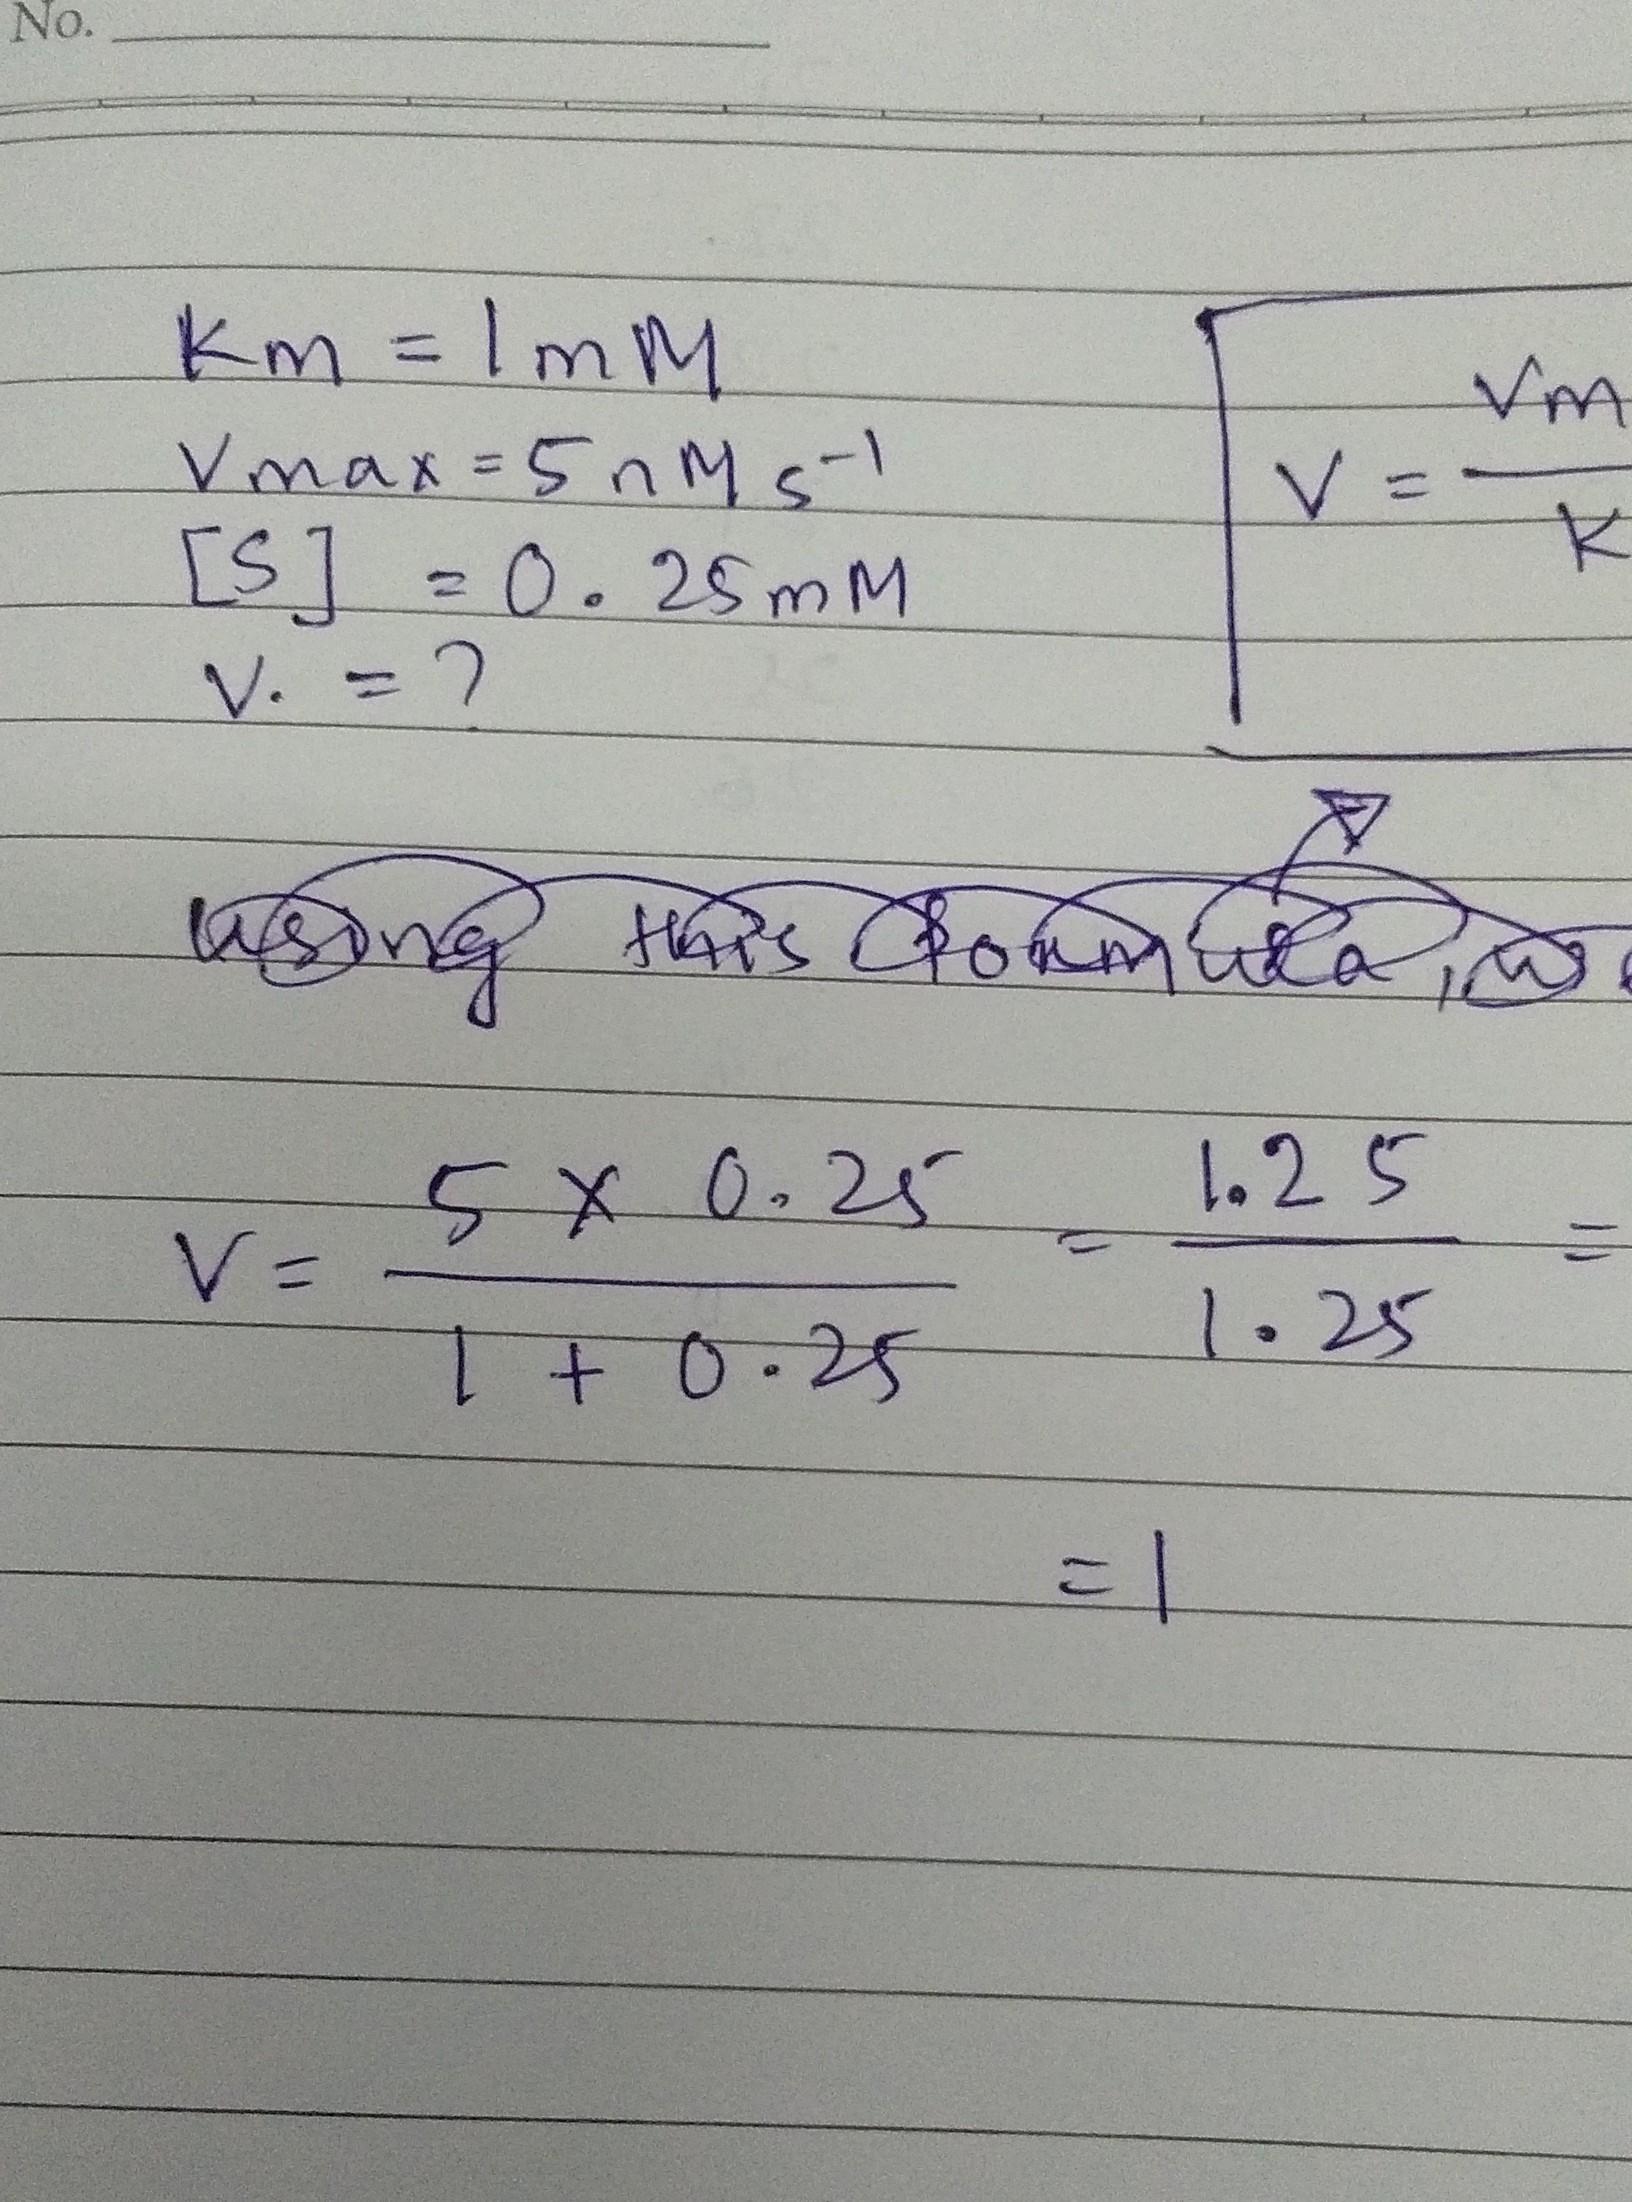 No.
Km = 1mM
Vmax = 5nM s⁻¹
[S] = 0.25mM
V. = ?
V = Vm
K
using this formula, w
V = 5 x 0.25 = 1.25 =
1 + 0.25 1.25
= 1